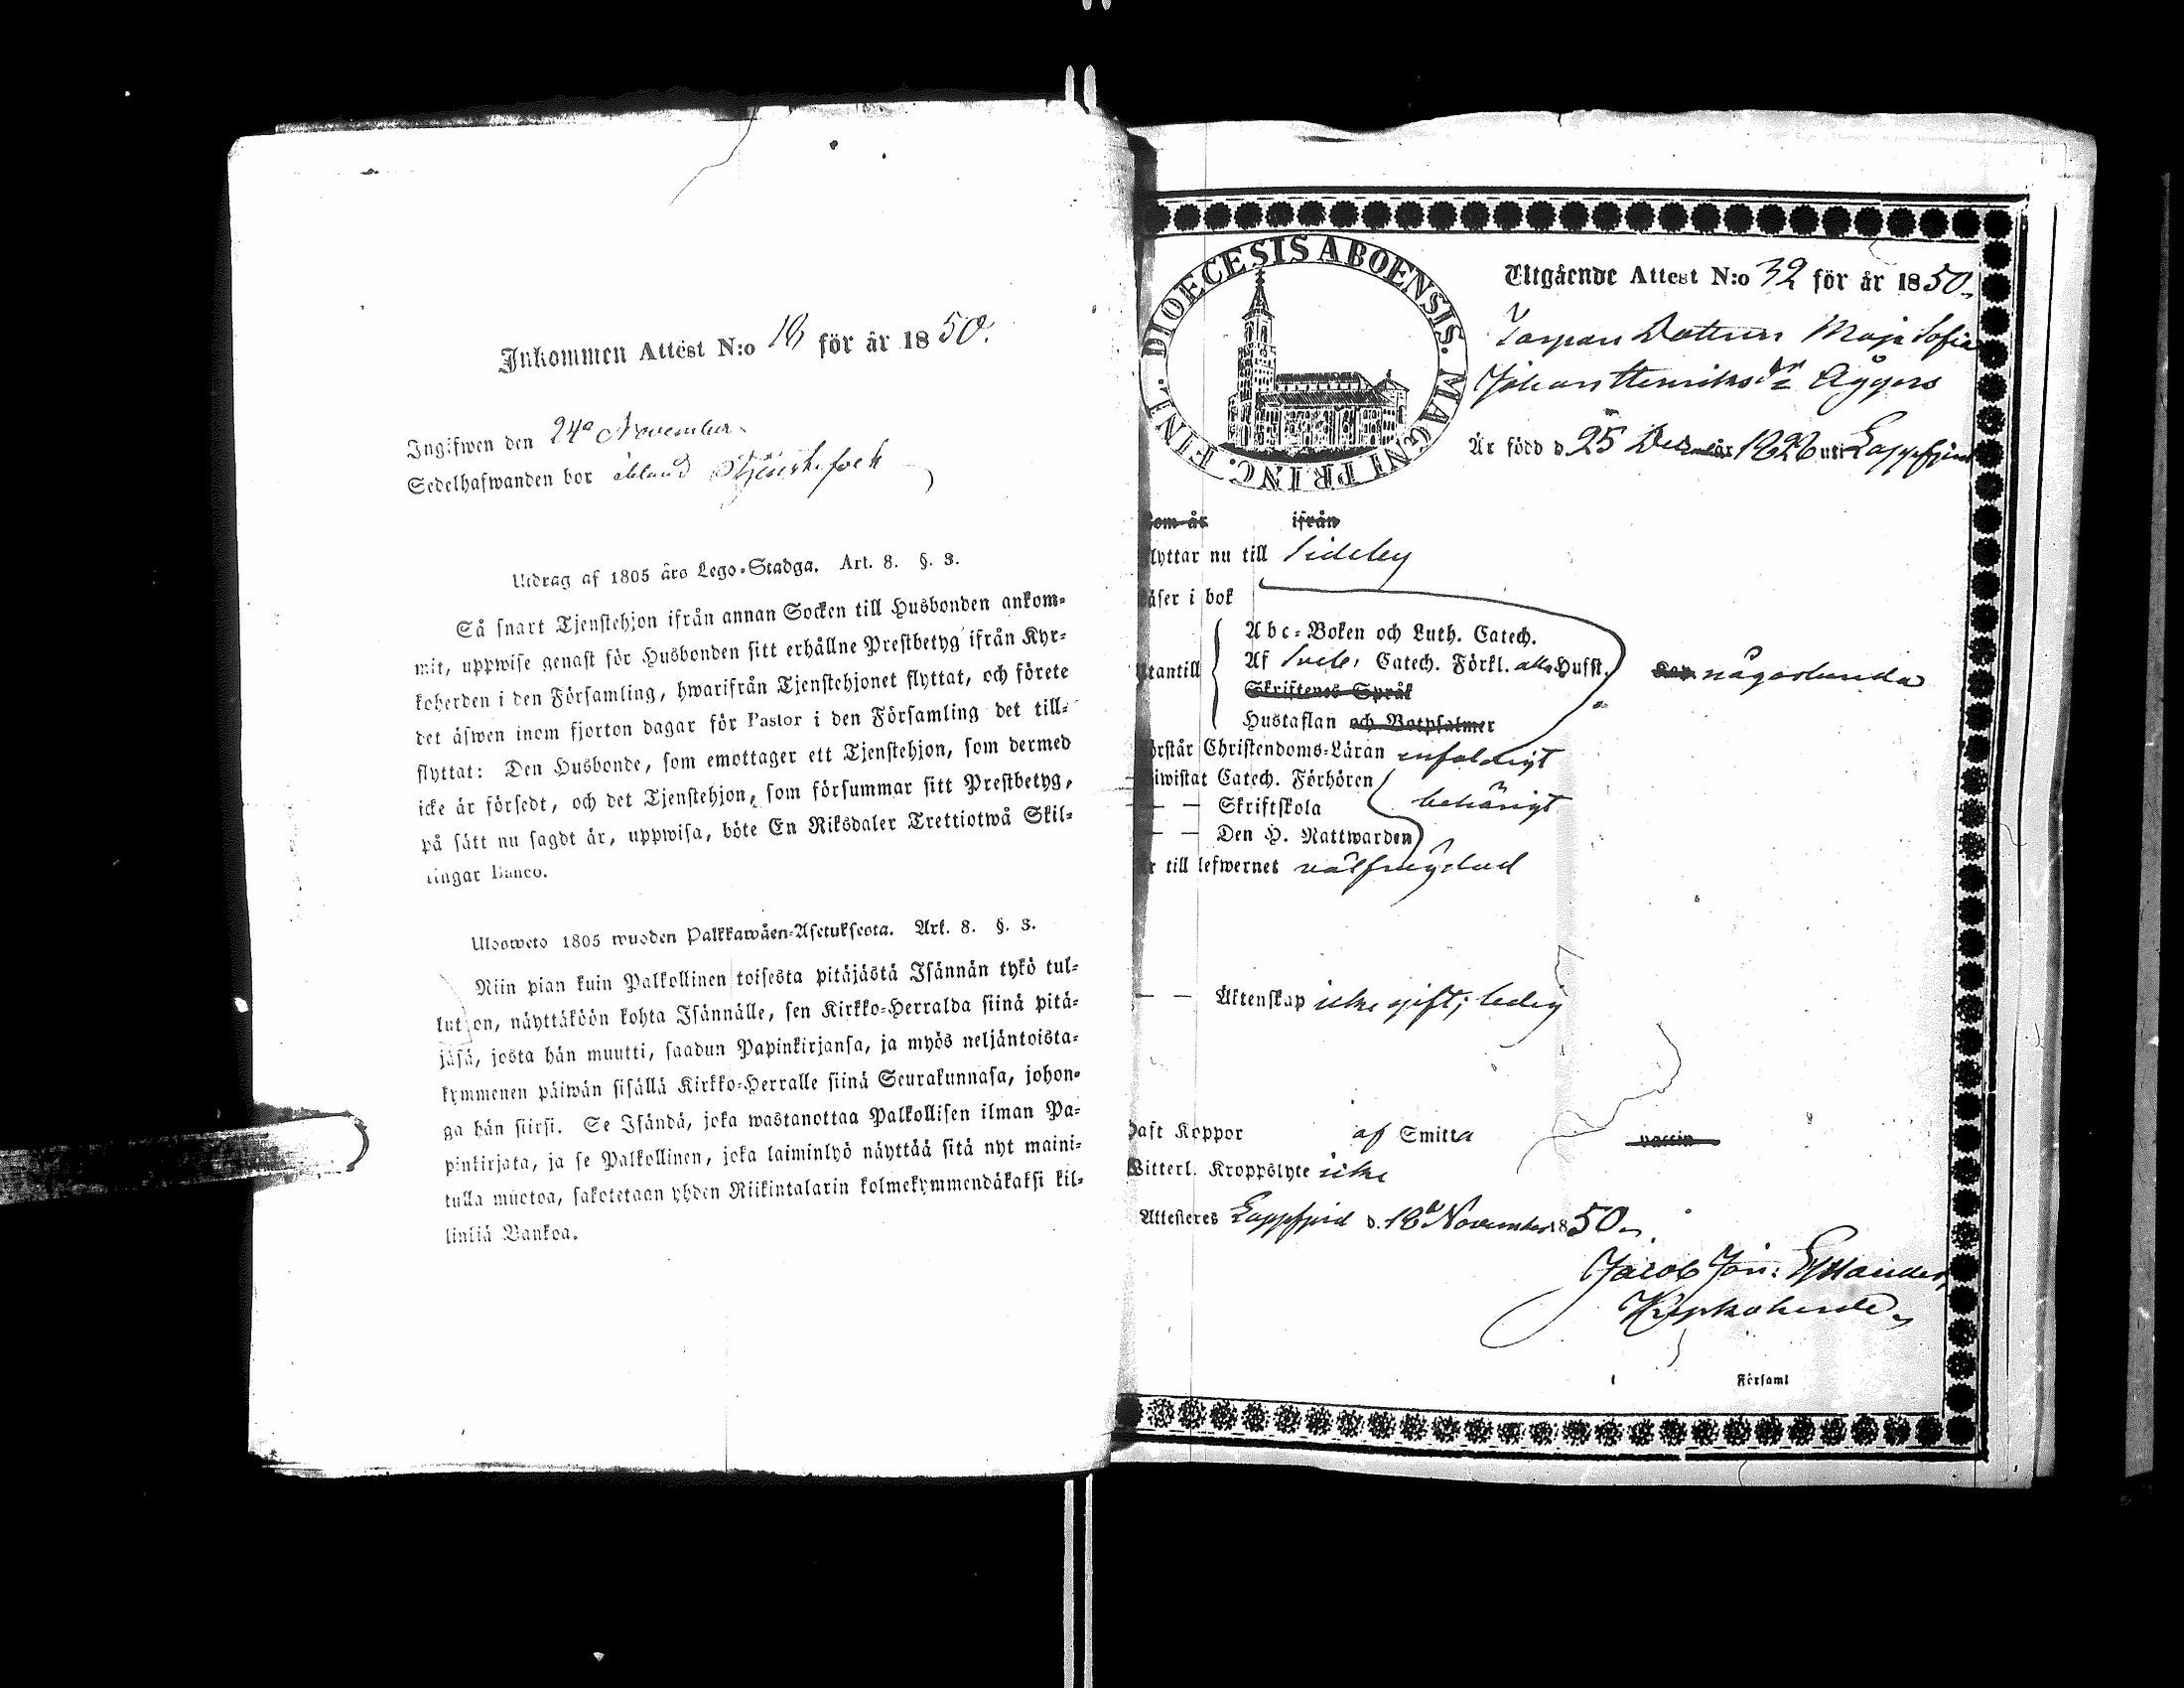 Inkommen Attest N:o 18 för år 1850.
Ingifwen den 24de November
Sedelhafwanden bor ibland Tjenstefolk
Utdrag af 1805 års Lego-Stadga. Art. 8. §. 3.
Så snart Tjenstehjon ifrån annan Socken till Husbonden ankom-
mit, uppwise genast för Husbonden sitt erhållne Prestbetyg ifrån Kyr-
koherden i den Församling, hwarifrån Tjenstehjonet flyttat, och förete
det äfwen inom fjorton dagar för Pastor i den Församling det till-
flyttat: Den Husbonde, som emottager ett Tjenstehjon, som dermed
icke är försedt, och det Tjenstehjon, som försummar sitt Prestbetyg,
på sätt nu sagdt är, uppwisa, böte En Riksdaler Trettiotwå Skil-
lingar Banco.
Ulosweto 1805 wuoden Palkkawäen-Asetuksesta. Art. 8. §. 3.
Niin pian kuin Palkollinen toisesta pitäjästä Isännän tykö tul-
lut on, näyttäköön kohta Isännälle, sen Kirkko-Herralda siinä pitä-
jäsä, josta hän muutti, saadun Papinkirjansa, ja myös neljäntoista-
kymmenen päiwän sisällä Kirkko-Herralle siinä Seurakunnasa, johon-
ga hän siirsi. Se Isändä, joka wastanottaa Palkollisen ilman Pa-
pinkirjata, ja se Palkollinen, joka laiminlyö näyttää sitä nyt maini-
tulla muotoa, sakotetaan yhden Riikintalarin kolmekymmendäkaksi kil-
linkiä Bankoa.
DIOECESIS ABOENSIS. MAGNI PRINC. FINL.
Utgående Attest N:o 32 för år 1850.
Dottren Maja Sofia
Johan Henriksdr Åggers
Är född d. 25 Dec. år 1826 uti Lappfjerd
Kom år ifrån
Flyttar nu till Sideby
Läser i bok
Utantill
Abc-Boken och Luth. Catech.
Af Sveb. Catech. Förkl. alla Hufst.
någorlunda
Skriftenes Språk
Hustaflan och Botpsalmer
Förstår Christendoms-Läran enfaldigt
Biwistat Catech. Förhören
— — Skriftskola behörigt
— — Den H. Nattwarden
Är till lefwernet välfrägdad
— — Äktenskap icke gift; ledig
Haft Koppor af Smitta vaccin
Witterl. Kroppslyte icke
Attesteres Lappfjerd d. 18de November 1850.
Jacob Joh:
Kyrkoherde
Församl